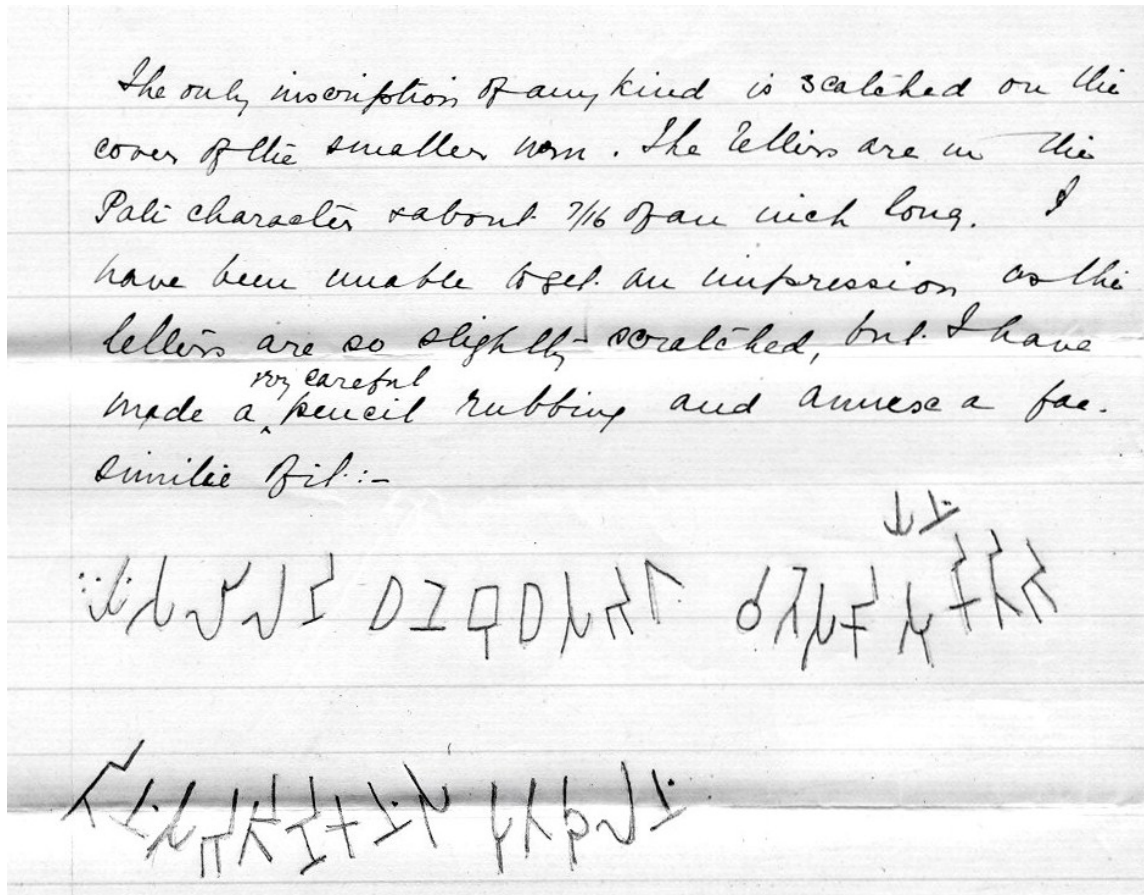 The only inscription of any kind is scatched on the
cover of the smaller urn. The letters are in the
Pali character & about 7/16 of an inch long. I
have been unable to get an impression as the
letters are so slightly scratched, but I have
very careful
made a ‸ pencil rubbing and annex a fac-
similie of it:-
𑀬𑀦𑀁
𑀇𑀬𑀁𑀲𑀮𑀺𑀮𑀦𑀺 𑀥𑀦𑁂𑀩𑀼𑀥𑀲𑀪𑀕 𑀯𑀢𑁂𑀲𑀓𑀺 𑀲𑀼𑀓𑀺𑀢𑀺𑀪
𑀢𑀺𑀦𑀁𑀲𑀪𑀕𑀺𑀦𑀺𑀓𑀦𑀁𑀲 𑀧𑀼𑀢𑀤𑀮𑀦𑀁